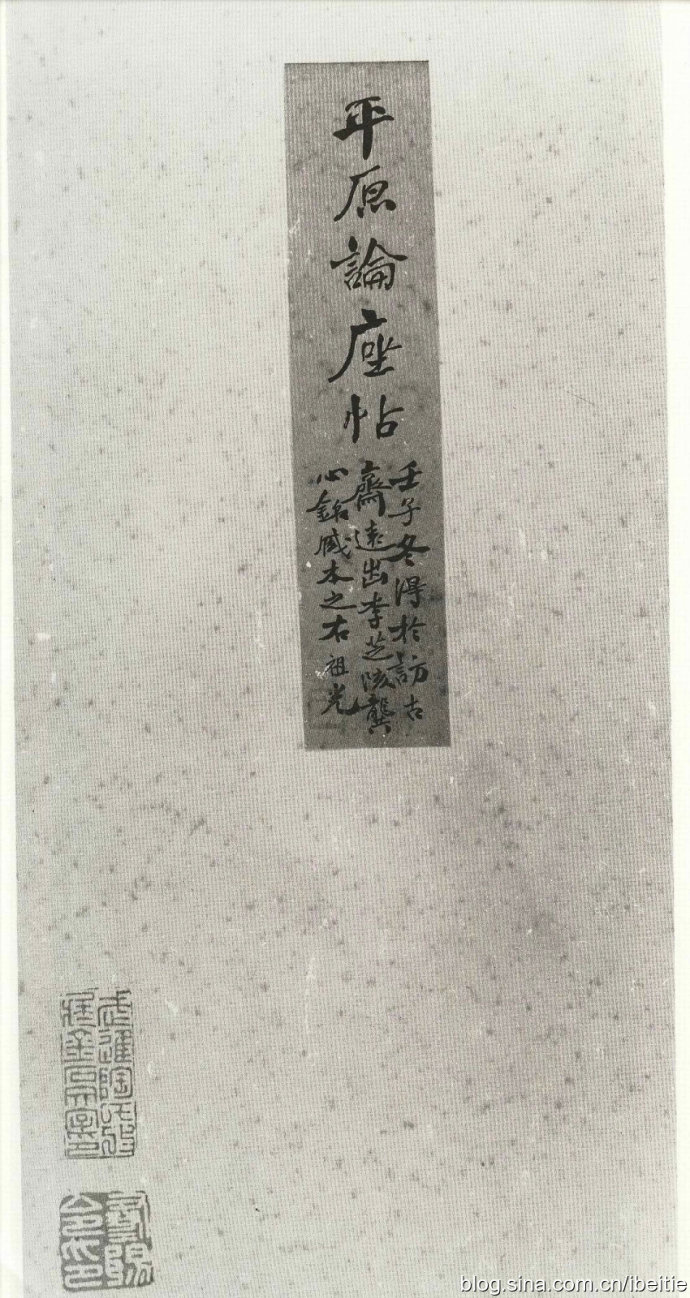 平原論座帖
壬子冬得於訪古
齋遠出李芝陔龔
心銘臧本之右 祖光
blog.sina.com.cn/ibeitie